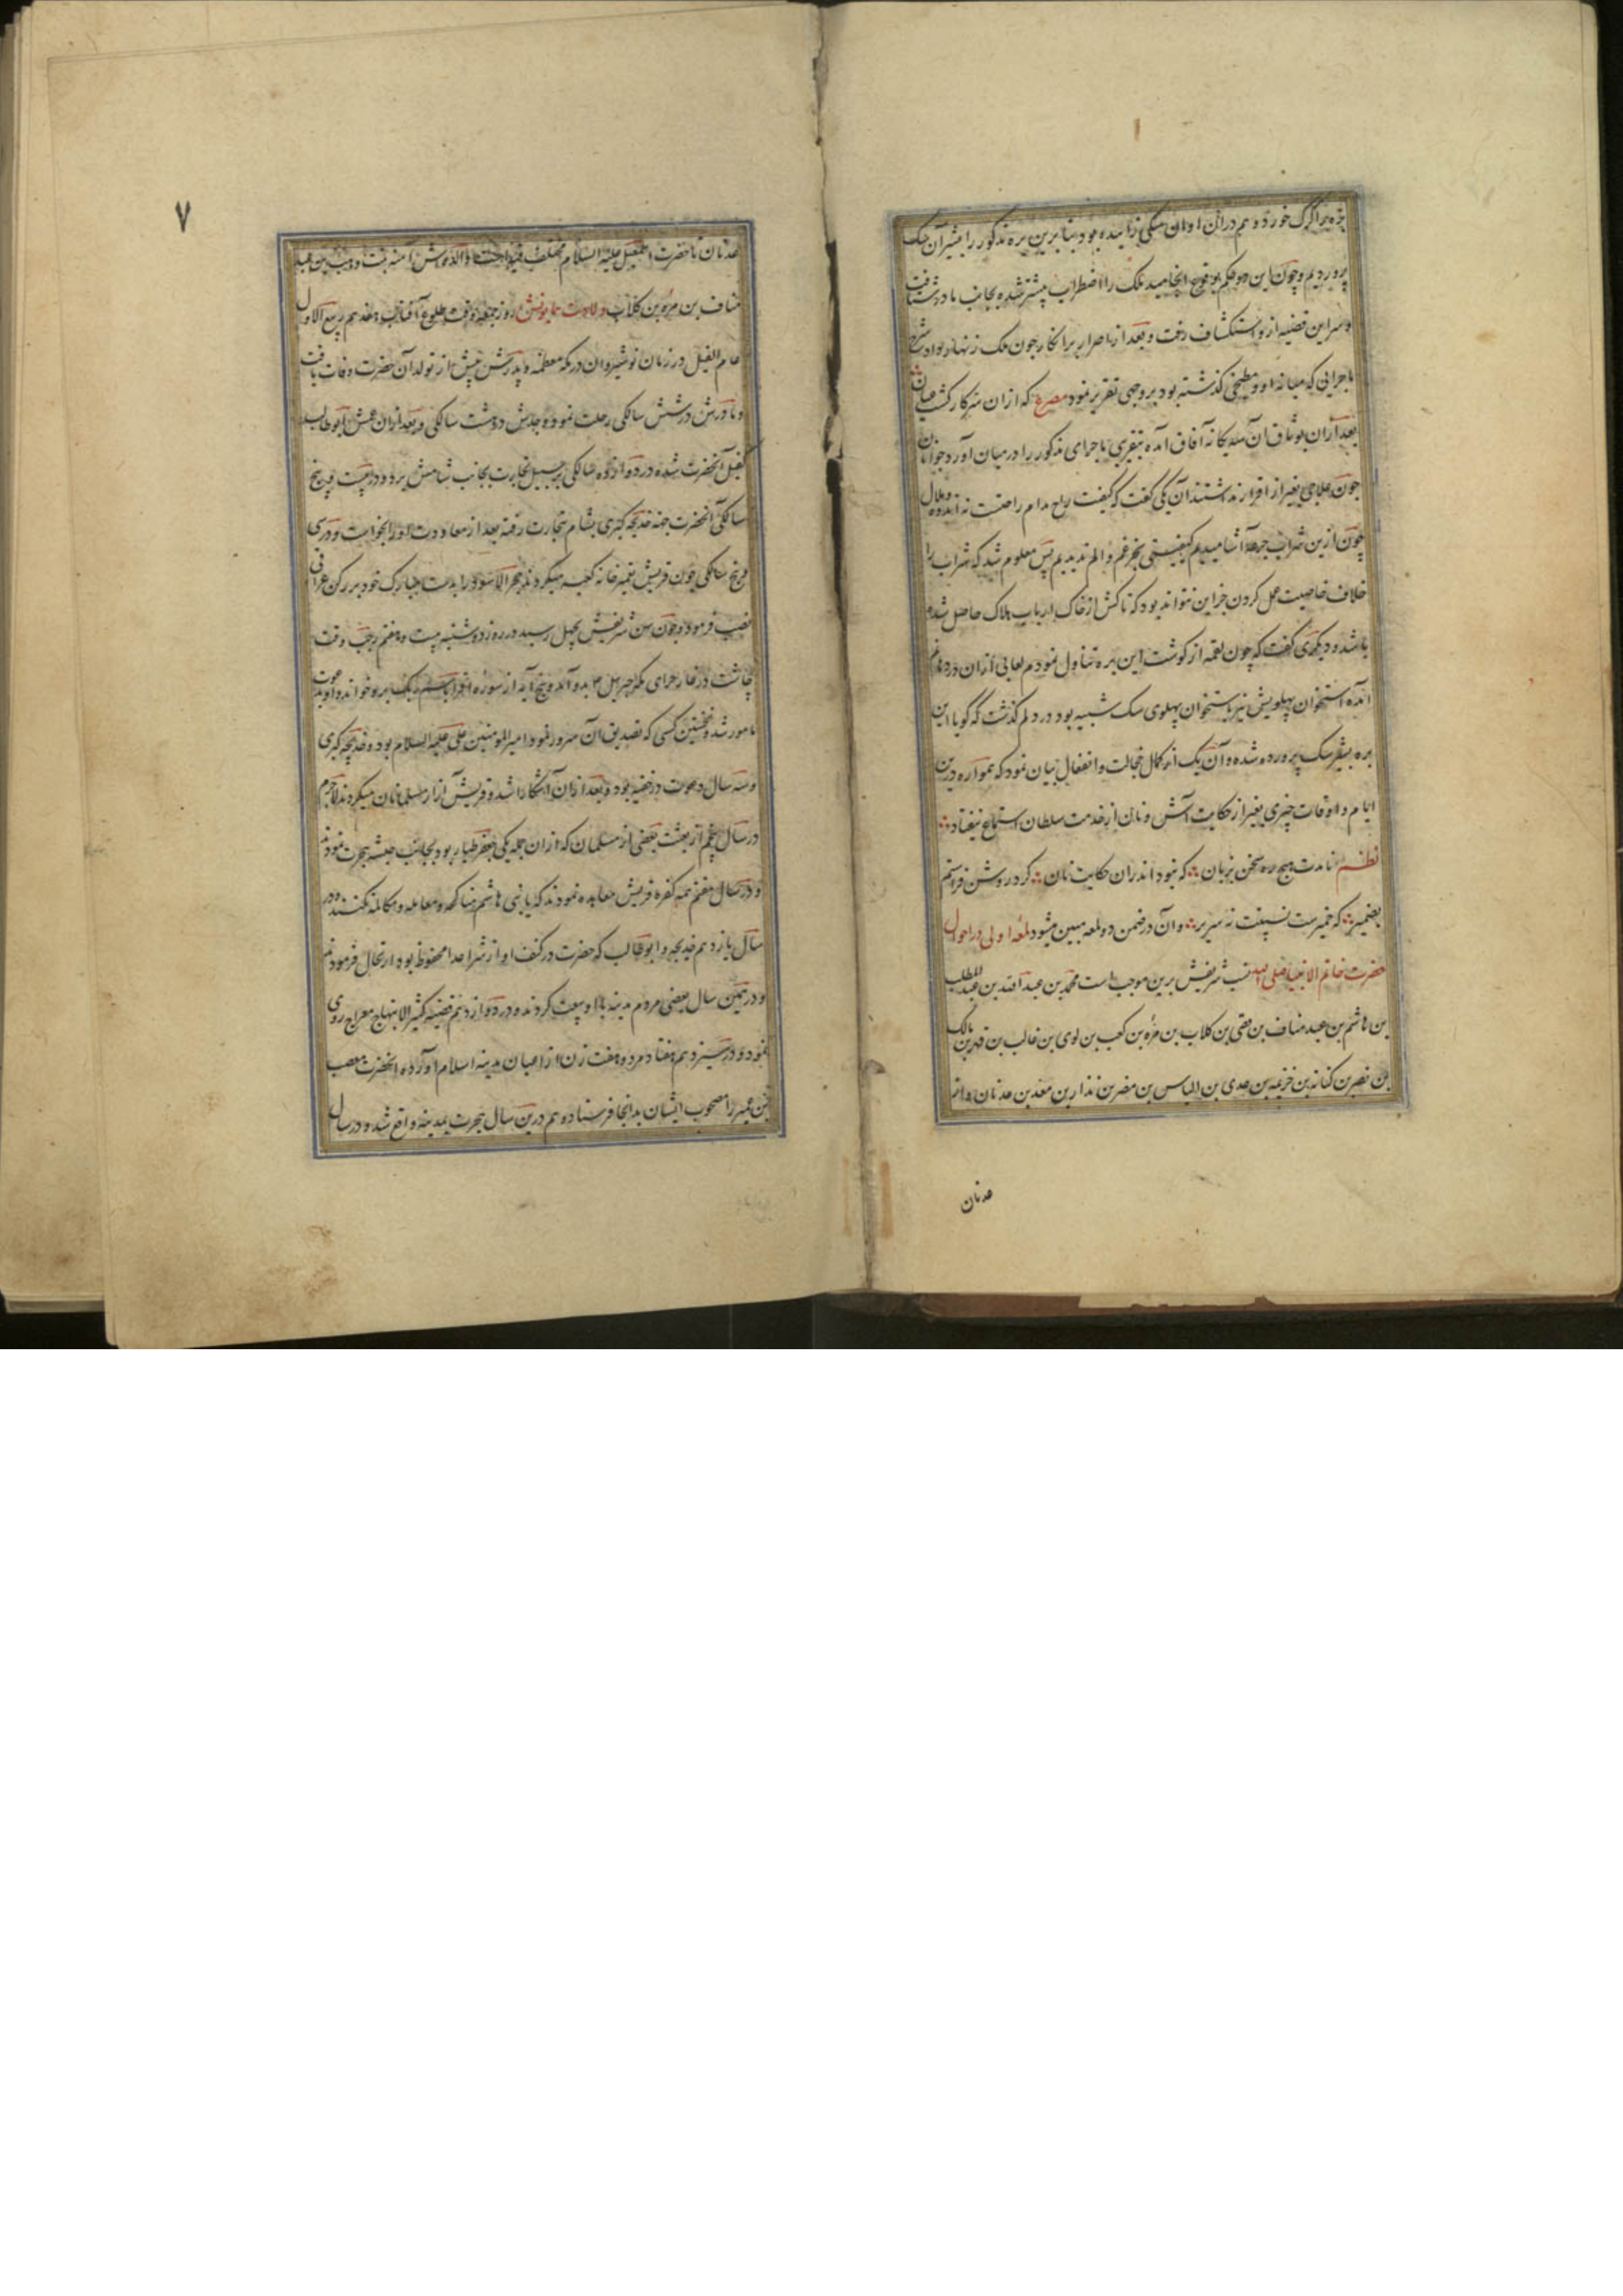 بره را گرگ خورد و هم دران اوان سکی زاییده بود بنا برین بره مذکور را بشیر آن سک
پروردیم و چون این دو حکم بوقوع انجامید ملک را اضطراب بیشتر شده بجانب مادر شتافت
و سر این قضیه ازو استکشاف رفت و بعد از اصرار بر انکار چون ملک زنهار داد شرح
ماجرایی که میانه او و مطبخی گذشته بود بروجهی تقریر نمود مصرع که ازان سر کار کشت عیان
بعد ازان بوثاق آن سه یکانه آفاق آمده بتقریبی ماجرای مذکور را در میان آورد جوانان
چون علاجی بغیر از اقرار نداشتند آن یکی گفت که کیفیت راح مدام راحتست نه اندوه و ملال
چون ازین شراب جرعه آشامیدیم کیفیتی بجز غم و الم ندیدیم پس معلوم شد که شراب را
خلاف خاصیت عمل کردن جز این نتواند بود که تاکش از خاک ارباب هلاک حاصل شده
باشد و دیکری گفت که چون لقمه از کوشت این بره تناول نمودم لعابی ازان در دهانم
آمده استخوان پهلویش نیز باستخوان پهلوی سک شبیه بود در دلم گذشت که گویا این
بره بشیر سک پرورده شده و آن یک از کمال خجالت و انفعال بیان نمود که همواره درین
ایام و اوقات چیزی بغیر از حکایت آش و نان از خدمت سلطان استماع نیفتاد
نظم نامدت هیچ ره سخن بزبان که نبود اندران حکایت نان کرد روشن فراستم
بضمیر که خمیرت نسیفت نه سریر و آن در ضمن دو لمعه مبین میشود لمعه اولی در احوال
حضرت خاتم الانبیا صلی الله نسب شریفش برین موجب است محمد بن عبد الله بن عبد المطلب
بن هاشم بن عبد مناف بن قصی بن کلاب بن مره بن کعب بن لوی بن غالب بن فهر بن مالک
بن نضر بن کنانه بن خزیمه بن عدی بن الیاس بن مضر بن نذار بن معد بن عدنان و از
عدنان
۷
عدنان تا حضرت اسمعیل علیه السلام مختلف فیه است والده اش آمنه بنت وهب بن عبد
مناف بن مره بن کلاب ولادت همایونش روز جمعه وقت طلوع آفتاب هفدهم ربیع الاول
عام الفیل در زمان نوشیروان در مکه معظمه و پدرش پیش از تولد آن حضرت وفات یافت
و مادرش در شش سالکی رحلت نموده و جدش در هشت سالکی و بعد ازان عمش ابو طالب
کفیل آنحضرت شده در دوازده سالکی برسبیل تجارت بجانب شامش برد و در بیست و پنج
سالکی آنحضرت جهة خدیجه کبری بشام بتجارت رفته بعد از معاودت او را بخواست و در سی
و پنج سالکی چون قریش تعمیر خانه کعبه میکردند حجر الاسود را بدست مبارک خود بر رکن عراقی
نصب فرمود و چون سن شریفش بچهل رسید در روز دوشنبه بیست و هفتم رجب وقت
چاشت در غار حرای مکه جبرئیل ع بدو آمد و پنج آیه از سوره اقرا باسم ربک برو خواند و او بدعوت
مامور شد و نخستین کسی که تصدیق آن سرور نمود امیر المومنین علی علیه السلام بود و خدیجه کبری
و سه سال دعوت در خفیه بود و بعد ازان آشکارا شد و قریش آزار مسلمانان میکردند لاجرم
در سال پنجم از بعثت بعضی از مسلمان که ازان جمله یکی جعفر طیار بود بجانب حبشه هجرت نمودند
و در سال هفتم همه کفره قریش معاهده نمودند که با بنی هاشم مناکحه و معامله و مکالمه نکنند و در
سال یازدهم خدیجه و ابو طالب که حضرت در کنف او از شر اعدا محفوظ بود ارتحال فرمودند
و در همین سال بعضی مردم مدینه با او بیعت کردند و در دوازدهم قضیه کثیر الابتهاج معراج روی
نمود و در سیزدهم هفتاد مرد و هفت زن از اعیان مدینه اسلام آورده آنحضرت مصعب
بن عمیر را مصحوب ایشان بدانجا فرستاد و هم درین سال هجرت بمدینه واقع شد و در سال